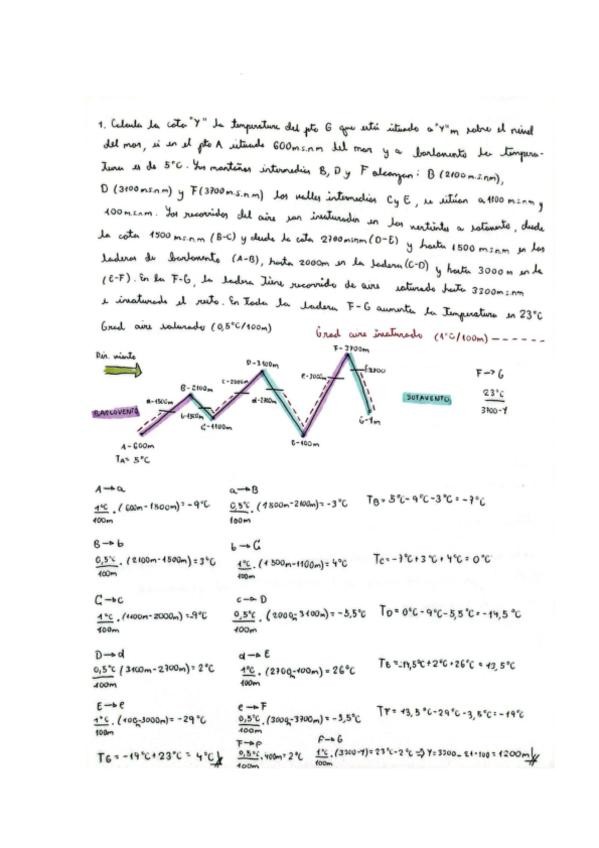 1. Calcula la cota "Y" la temperatura del pto G que está situado a "Y" m sobre el nivel
del mar, si en el pto A situado 600m s.n.m del mar y a barlovento la tempera-
tura es de 5°C. Las montañas intermedias B, D y F alcanzan: B (2100 m.s.n.m),
D (3100 m.s.n.m) y F (3700 m.s.n.m) los valles intermedios C y E, se sitúan a 1100 m.s.n.m y
100 m.s.n.m. Los recorridos del aire son insaturados en las vertientes a sotavento, desde
la cota 1500 m.s.n.m (B-C) y desde la cota 2700 m.s.n.m (D-E) y hasta 1500 m.s.n.m en las
laderas de barlovento (A-B), hasta 2000m en la ladera (C-D) y hasta 3000 m en la
(E-F). En la F-G, la ladera tiene recorrido de aire saturado hasta 3300 m.s.n.m
e insaturado el resto. En toda la ladera F-G aumenta la temperatura en 23°C
Grad aire saturado (0,5°C/100m) Grad aire insaturado (1°C/100m) ------
Dir. viento
F-3700m
D-3100m
f-3300
F→G
B-2100m
c-2000m
e-3000m
23°C
3700-Y
a-1500m
d-2700m
SOTAVENTO
BARLOVENTO
b-1500m
C-1100m
G-Ym
A-600m
E-100m
TA= 5°C
A→a a→B
1°C/100m · (600m-1500m)=-9°C 0,5°C/100m · (1500m-2100m)=-3°C TB=5°C-9°C-3°C=-7°C
B→b b→C
0,5°C/100m · (2100m-1500m)=3°C 1°C/100m · (1500m-1100m)=4°C TC=-7°C+3°C+4°C=0°C
C→c c→D
1°C/100m · (1100m-2000m)=-9°C 0,5°C/100m · (2000-3100m)=-5,5°C TD=0°C-9°C-5,5°C=-14,5°C
D→d d→E
0,5°C/100m (3100m-2700m)=2°C 1°C/100m · (2700-100m)=26°C TE=-14,5°C+2°C+26°C=13,5°C
E→e e→F
1°C/100m · (100-3000m)=-29°C 0,5°C/100m · (3000-3700m)=-3,5°C TF=13,5°C-29°C-3,5°C=-19°C
F→f f→G
TG=-19°C+23°C= 4°C 0,5°C/100m · 400m=2°C 1°C/100m · (3300-Y)=23°C-2°C ⇒ Y=3300-21·100=1200m